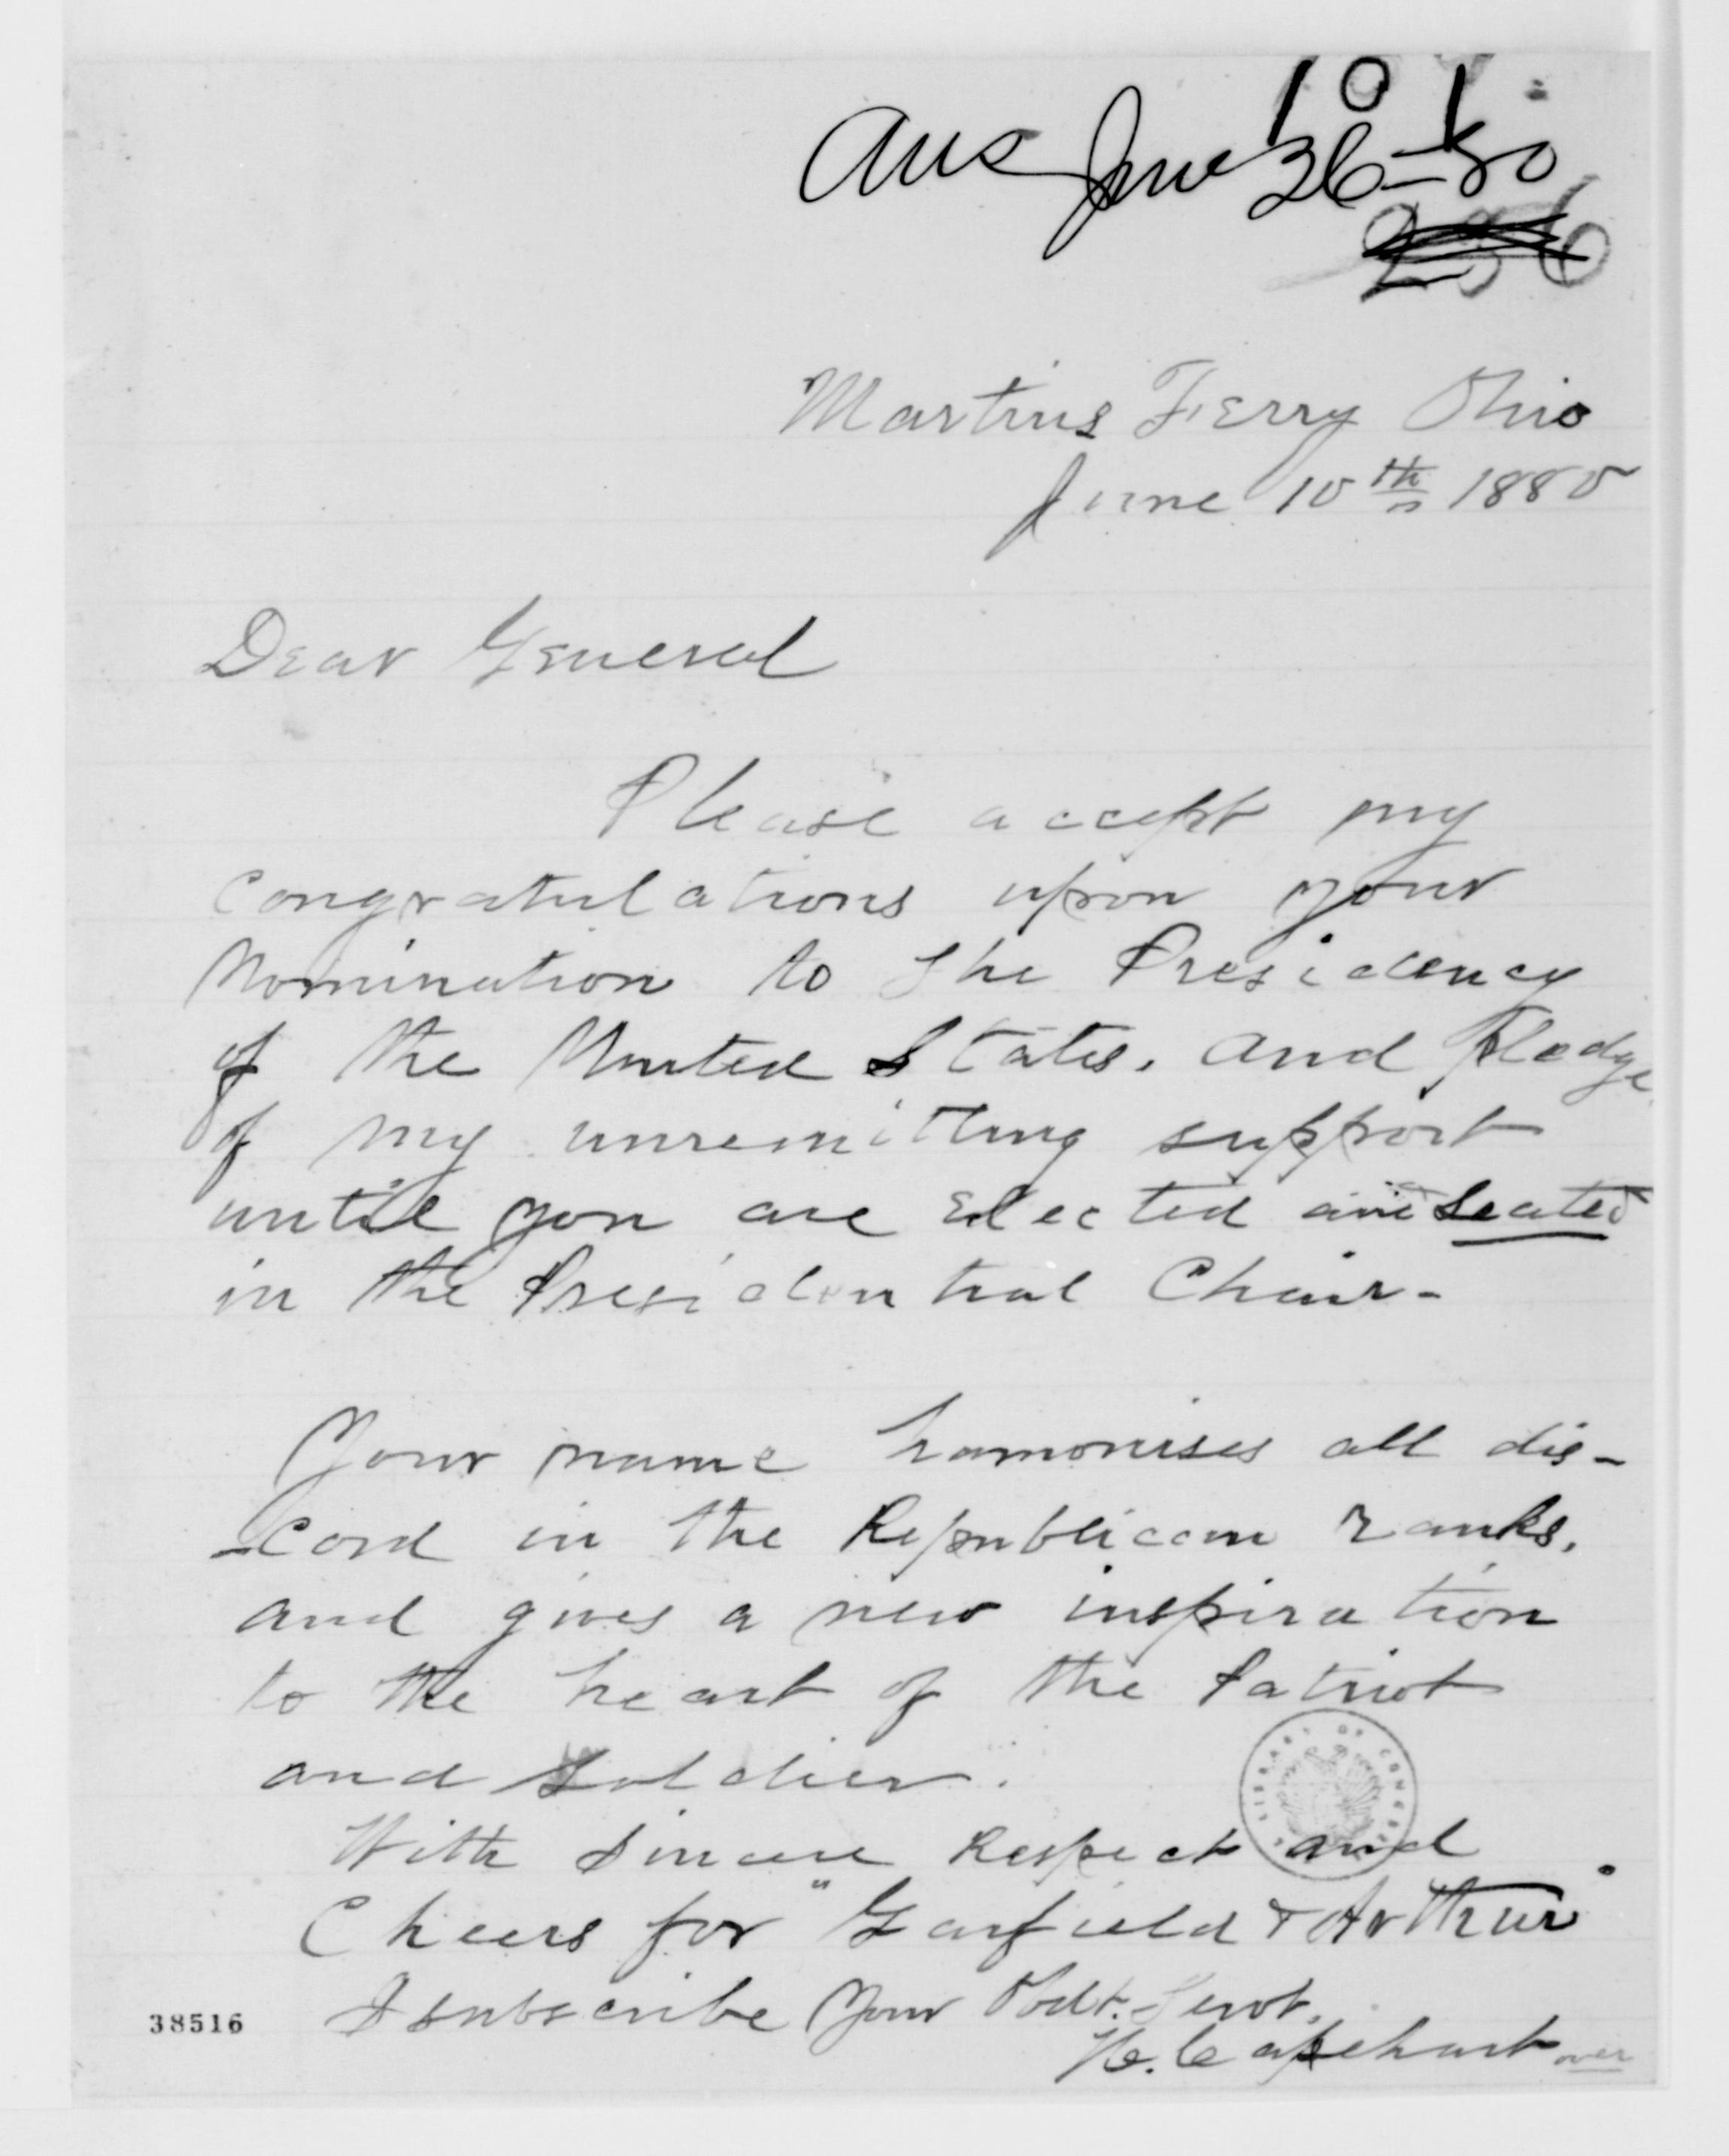 101
Ans June 26-80
Martins Ferry Ohio
June 10th 1880
Dear General
Please accept my
Congratulations upon your
Nomination to the Presidency
of the United States. and Pledge
of my unremitting support
until you are Elected and Seated
in the Presidential Chair-
Your name hamonises all dis-
-cord in the Republican ranks.
and gives a new inspiration
to the heart of the Patriot
and Soldier.
With Sincere Respect and
LIBRARY OF CONGRESS
Cheers for "Garfield & Arthur"
I subscribe Your Obdt. Servt.
38516
H. Capehart
over